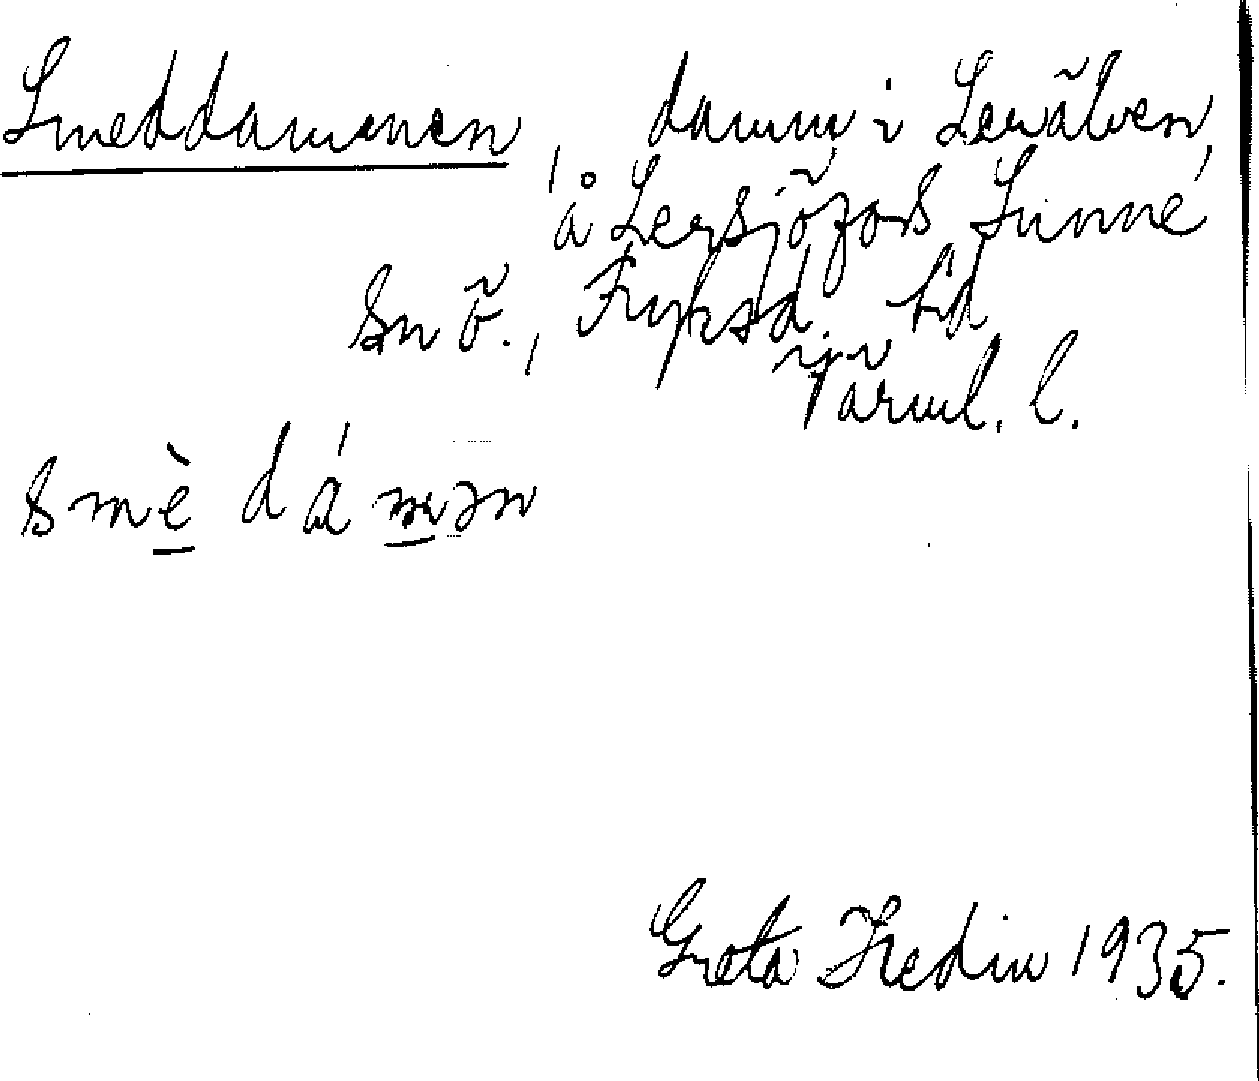 Smeddammen, damm i Lerälven,
å Lersjöfors Sunne
sn ö., Fryksd. hd
Värml. l.
smè dá mən
Greta Hedin 1935.